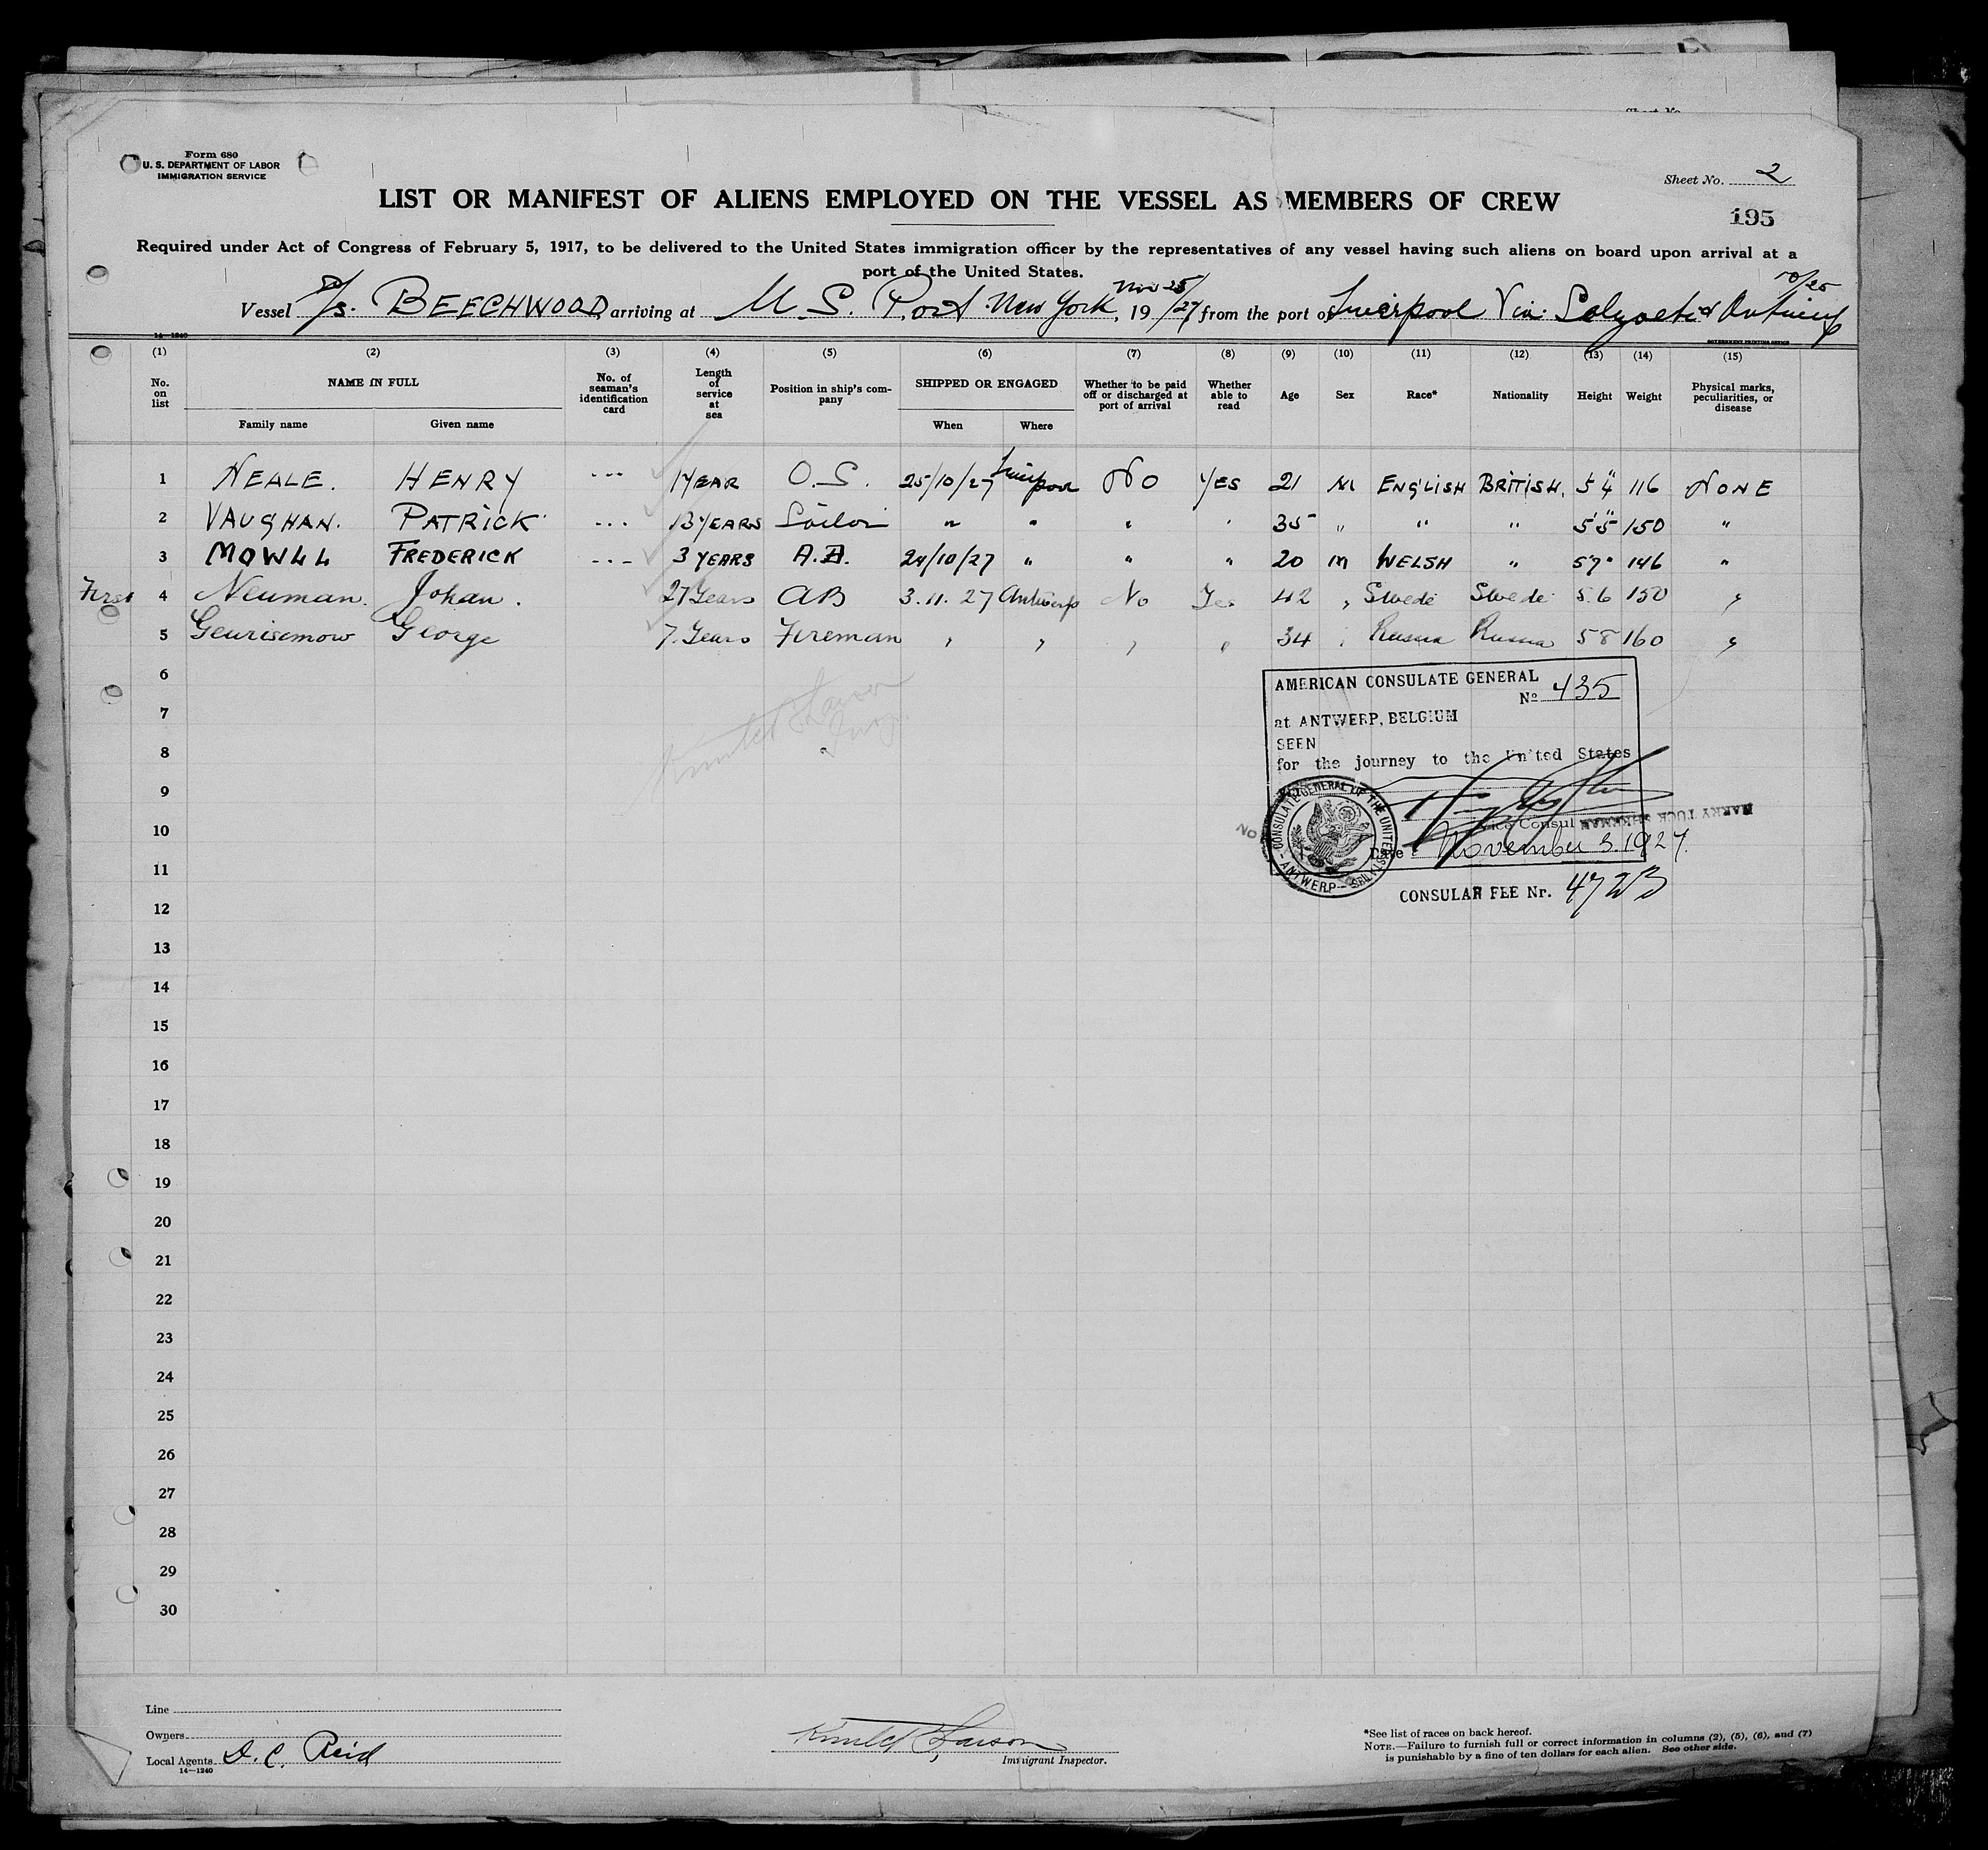 Form 680
U. S. DEPARTMENT OF LABOR
IMMIGRATION SERVICE
Sheet No. 2
LIST OR MANIFEST OF ALIENS EMPLOYED ON THE VESSEL AS MEMBERS OF CREW
195
Required under Act of Congress of February 5, 1917, to be delivered to the United States immigration officer by the representatives of any vessel having such aliens on board upon arrival at a
port of the United States.
Vessel S/s. BEECHWOOD, arriving at U. S. Port New York, Nov 25/, 19 /27, from the port of Liverpool Via:
14—1240
GOVERNMENT PRINTING OFFICE
(1) (2) (3) (4) (5) (6) (7) (8) (9) (10) (11) (12) (13) (14) (15)
No. on list NAME IN FULL No. of seaman's identification card Length of service at sea Position in ship's company SHIPPED OR ENGAGED Whether to be paid off or discharged at port of arrival Whether able to read Age Sex Race* Nationality Height Weight Physical marks, peculiarities, or disease
Family name Given name When Where
1 NEALE. HENRY --- 1 YEAR O.S. 25/10/27 Liverpool NO YES 21 M ENGLISH BRITISH. 5'4" 116 NONE
2 VAUGHAN. PATRICK --- 13 YEARS Sailor " " " " 35 " " " 5'5" 150 "
3 MOWLL FREDERICK --- 3 YEARS A.B. 24/10/27 " " " 20 M WELSH " 5'7" 146 "
First 4 Neuman. Johan. 27 Years AB 3.11.27 Antwerp No Yes 42 " Swede Swede 5.6 150 "
5 Geurisemow George 7. Years Fireman " " " " 34 " Russia Russia 5 8 160 "
6
AMERICAN CONSULATE GENERAL
No 435
7
at ANTWERP, BELGIUM
SEEN
8
for the journey to the United States
9
CONSULATE GENERAL OF THE UNITED STATES
ANTWERP
10
Vice Consul
Date: November 3. 1927.
11
CONSULAR FEE Nr. 4723
12
13
14
15
16
17
18
19
20
21
22
23
24
25
26
27
28
29
30
Line
Owners
Local Agents D. C. Reid
14—1240
Immigrant Inspector.
*See list of races on back hereof.
NOTE.—Failure to furnish full or correct information in columns (2), (5), (6), and (7)
is punishable by a fine of ten dollars for each alien. See other side.